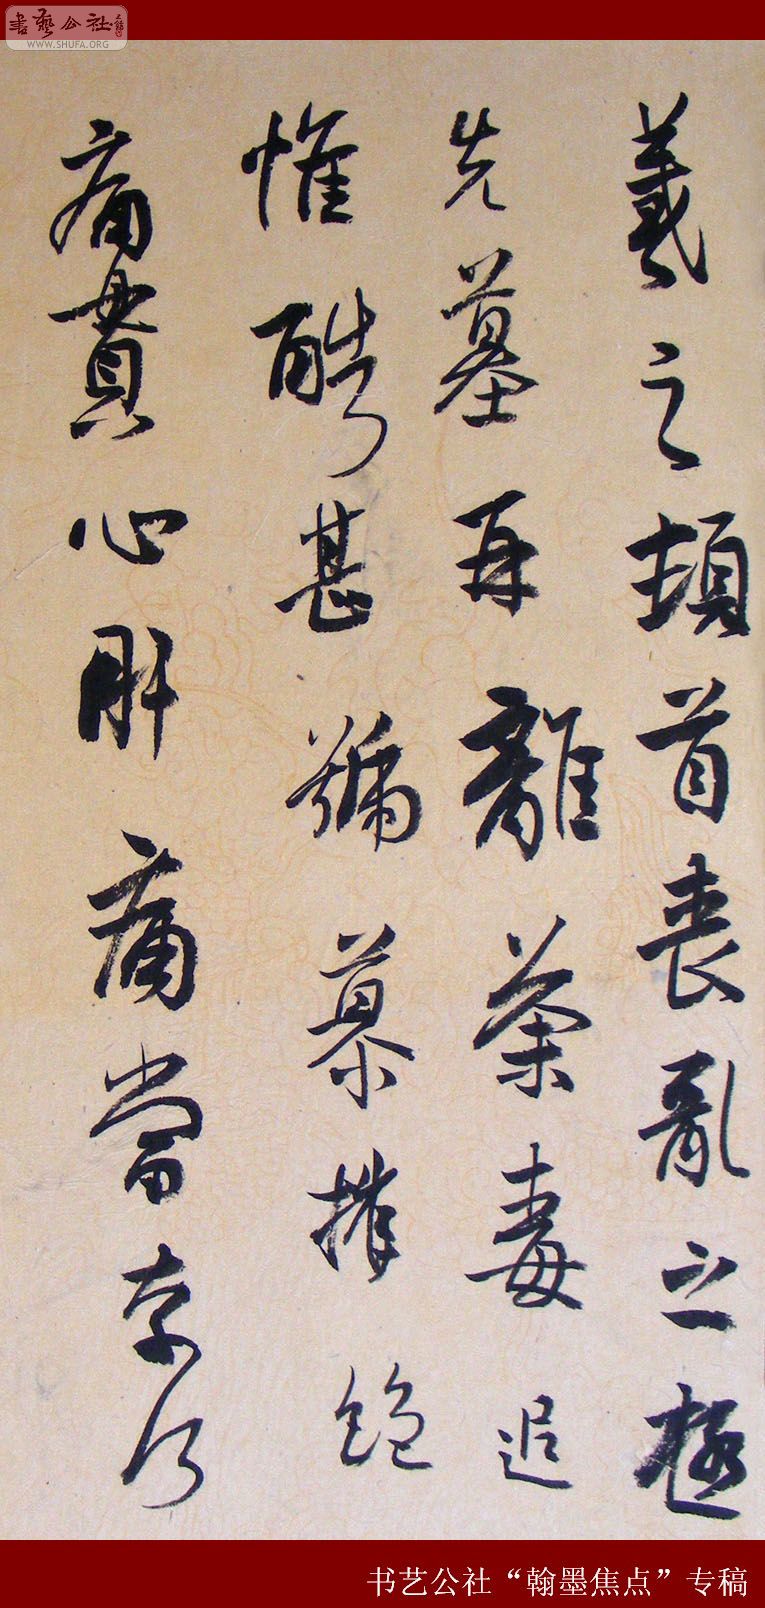 書藝公社
WWW.SHUFA.ORG
羲之頓首喪亂之極
先墓再離荼毒追
惟酷甚號慕摧絕
痛貫心肝痛當奈何
书艺公社“翰墨焦点”专稿